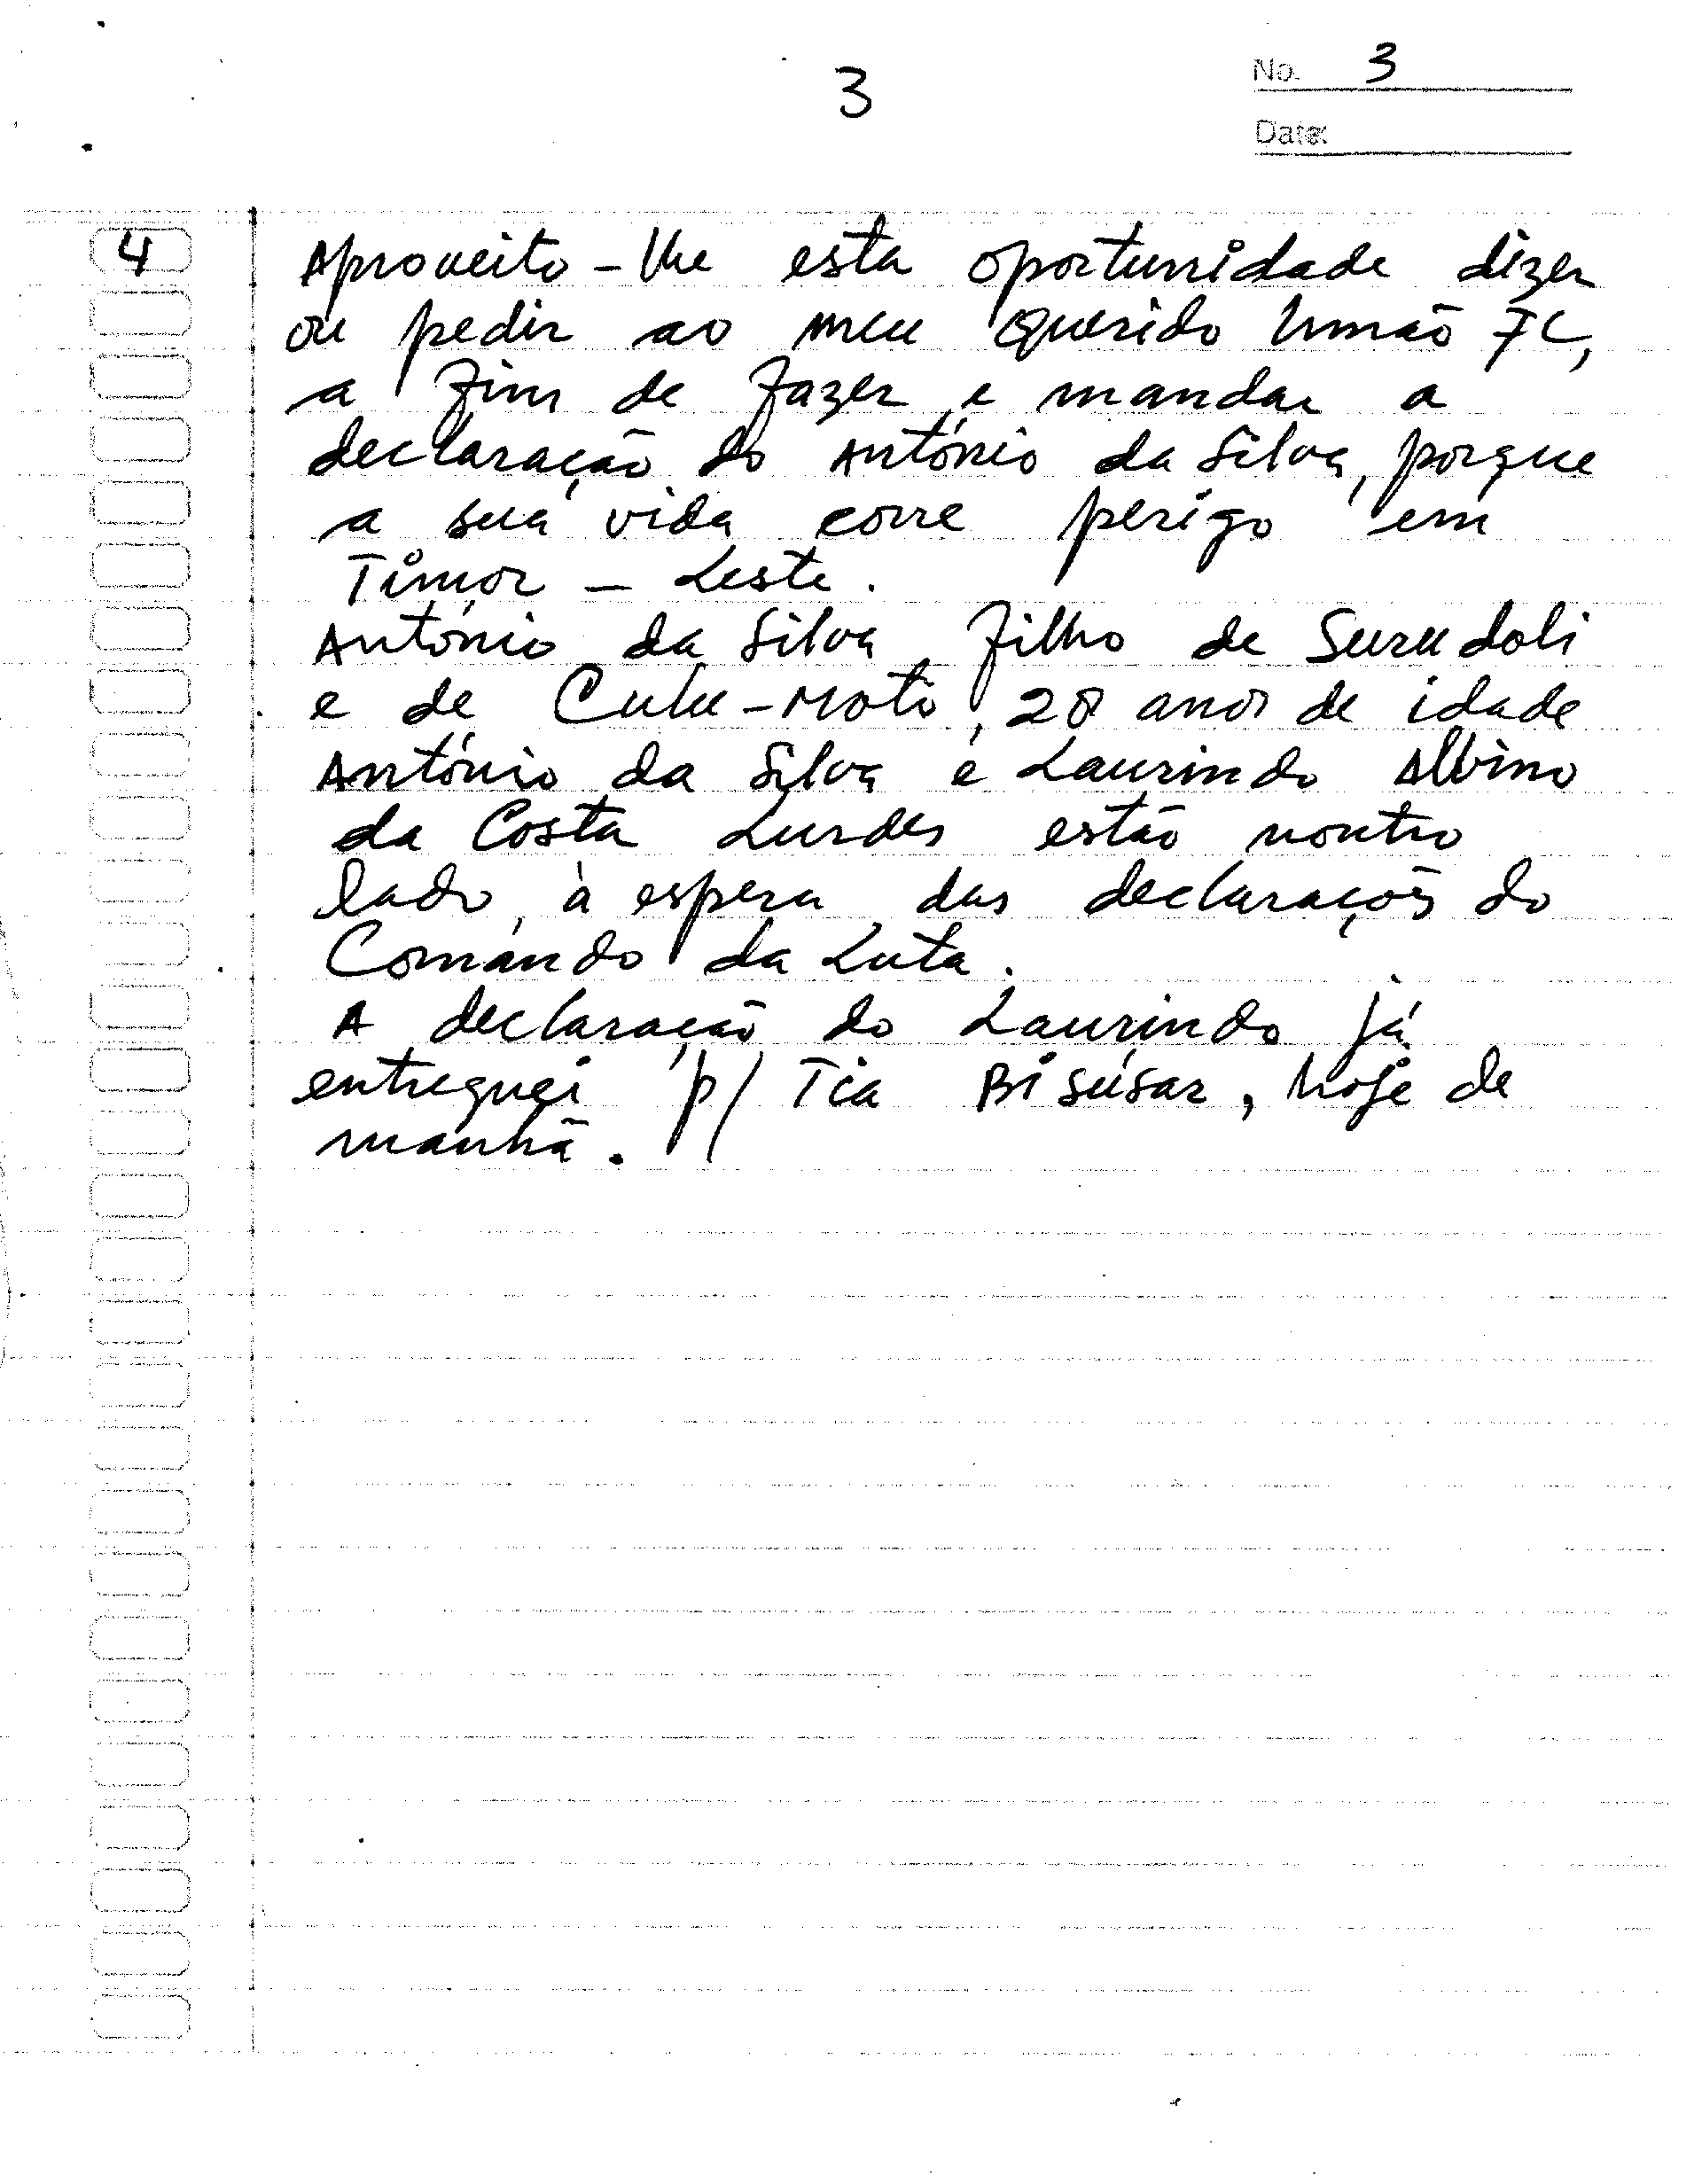 No. 3
3
Date:
4 Aproveito-lhe esta oportunidade dizer
ou pedir ao meu querido Irmão FC,
a fim de fazer e mandar a
declaração do António da Silva, porque
a sua vida corre perigo em
Timor - Leste.
António da Silva filho de Surudoli
e de Culu-Moto, 28 anos de idade
António da Silva e Laurindo Albino
da Costa Lurdes estão noutro
lado, à espera das declarações do
Comando da Luta.
A declaração do Laurindo já
entreguei p/ Tia Bisúsar, hoje de
manhã.